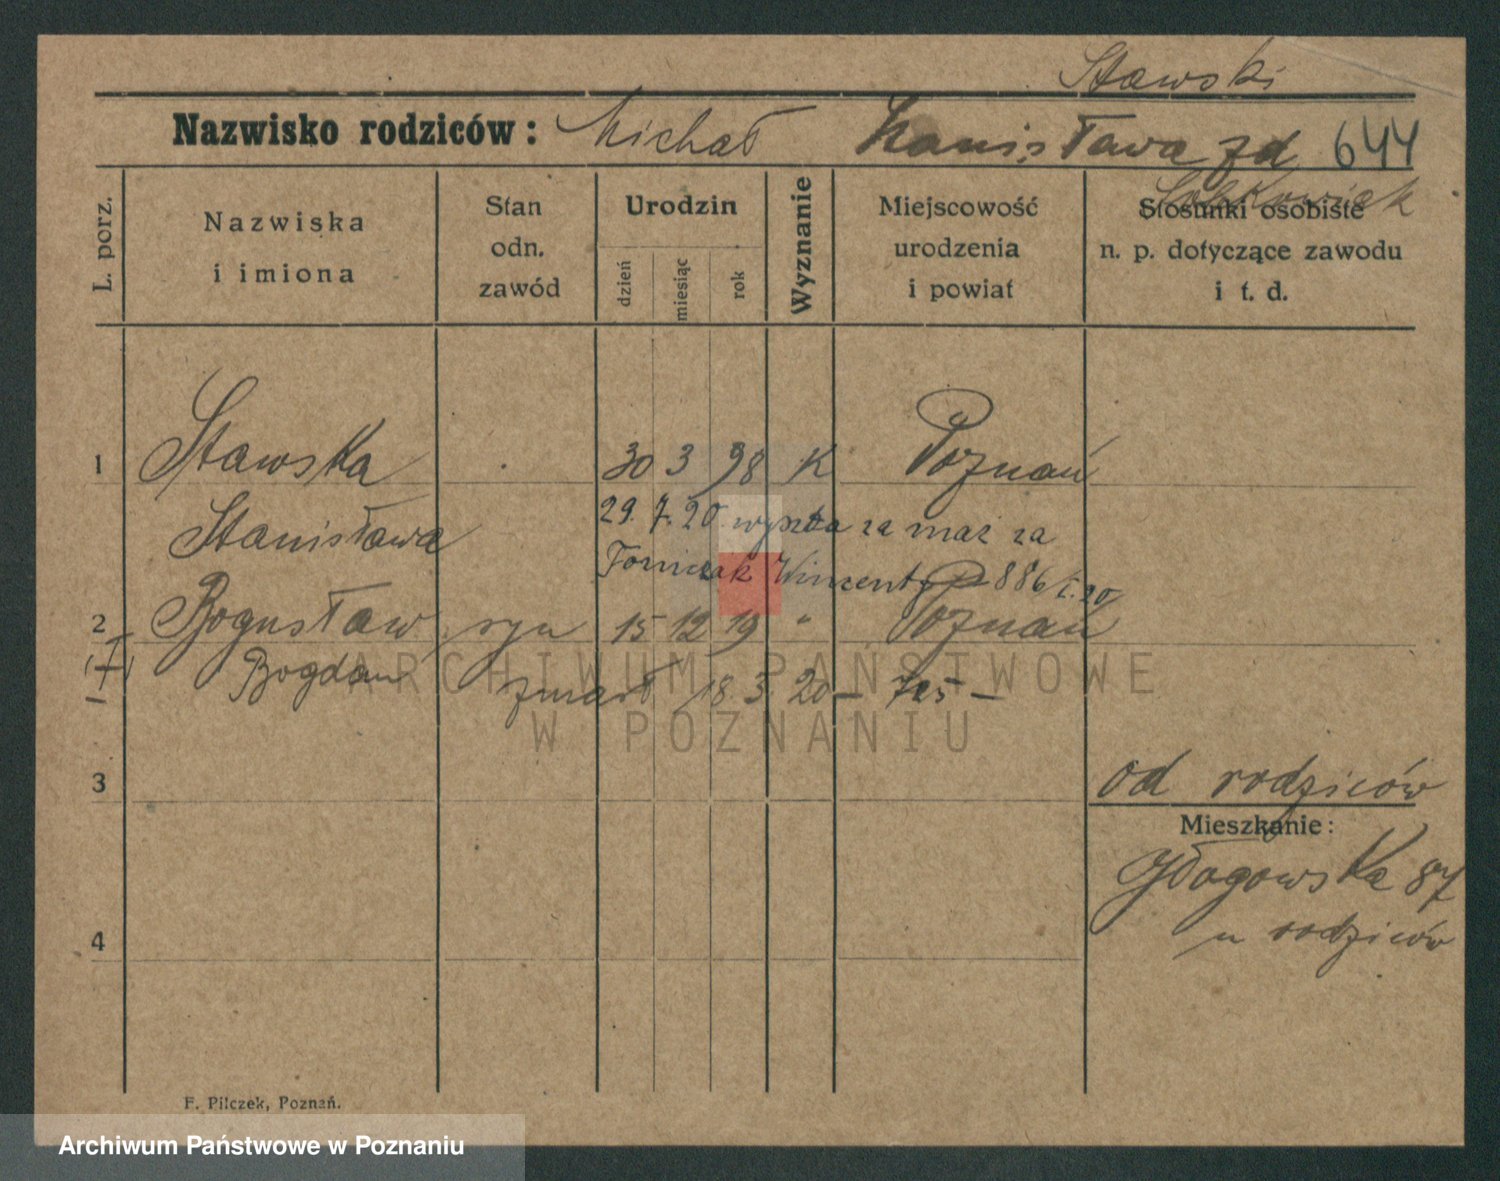 Stawski
Nazwisko rodziców: Michał Stanisława zd 644
L. porz.
Nazwiska
i imiona
Stan
odn.
zawód
Urodzin
dzień
miesiąc
rok
Wyznanie
Miejscowość
urodzenia
i powiat
Stosunki osobiste
n. p. dotyczące zawodu
i t. d.
1 Stawska 30 3 98 K Poznań
Stanisława 29. 7. 20. wyszła za mąż za
Tomczak Wincenty 886
2 Bogusław syn 15 12 19 " Poznań
Bogdan zmarł 18 3 20 – 725 –
ARCHIWUM PAŃSTWOWE
W POZNANIU
3
od rodziców
Mieszkanie:
Głogowska 87
u rodziców
4
F. Pilczek, Poznań.
Archiwum Państwowe w Poznaniu